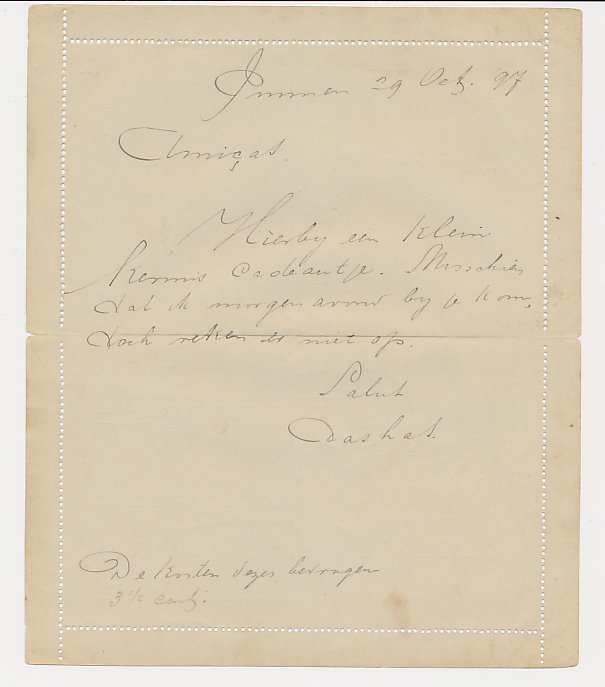 Immen 29 Oct. '97
Amiças.
Hierby een klein
Kermis cadeautje. Misschien
dat ik morgen avond by je kom,
doch reken er niet op.
Salut
Dashat.
De kosten dezes bedragen
3 1/2 cent.